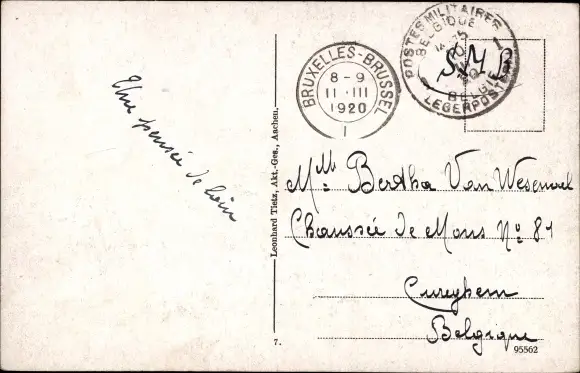 Une pensée de loin
Leonhard Tietz, Akt.-Ges., Aachen.
7.
BRUXELLES-BRUSSEL
8-9
11 III
1920
1
POSTES MILITAIRES
BELGIQUE
1
BELGIE
LEGERPOSTERIJ
S.M.B
Mlle Bertha Van Wesemael
Chaussée de Mons No 81
Cureghem
Belgique
95562